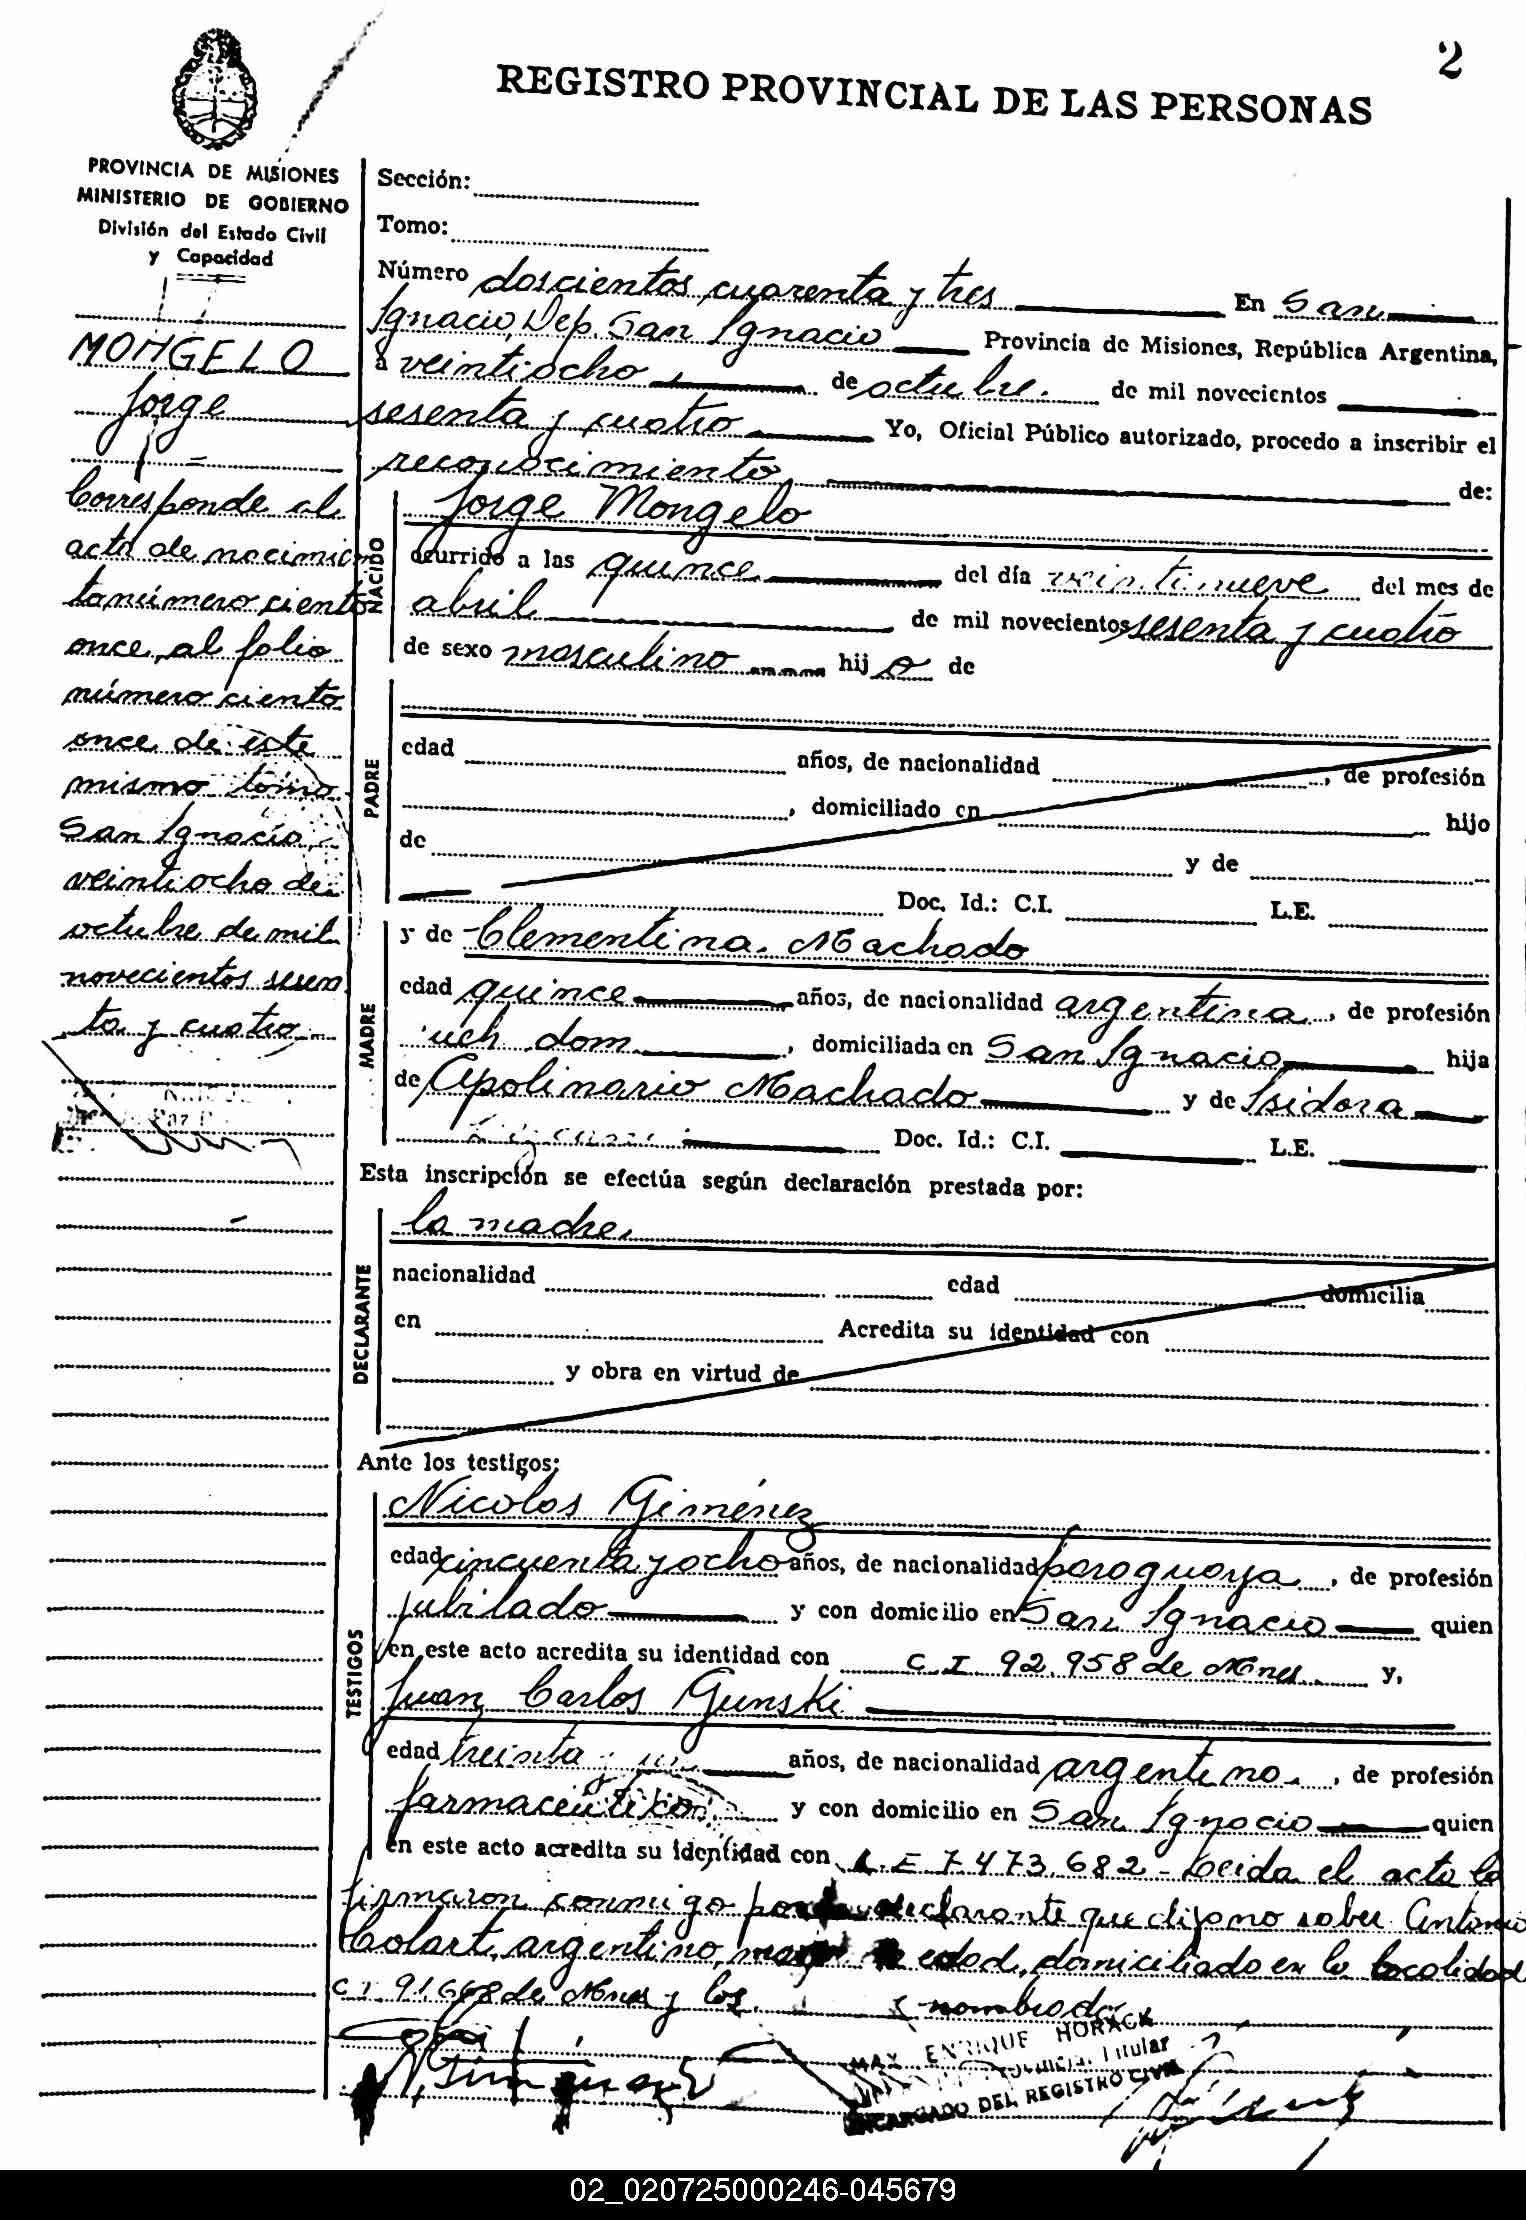 2
REGISTRO PROVINCIAL DE LAS PERSONAS
PROVINCIA DE MISIONES
MINISTERIO DE GOBIERNO
División del Estado Civil
y Capacidad
MONGELO
Jorge
Corresponde al
acta de nacimien
to número ciento
once, al folio
número ciento
once de este
mismo tomo
San Ignacio,
veintiocho de
octubre de mil
novecientos sesen
ta y cuatro
Sección:
Tomo:
Número doscientos cuarenta y tres En San
Ignacio, Dep. San Ignacio Provincia de Misiones, República Argentina,
a veintiocho de octubre de mil novecientos
sesenta y cuatro Yo, Oficial Público autorizado, procedo a inscribir el
reconocimiento de:
NACIDO
Jorge Mongelo
ocurrido a las quince del día veintinueve del mes de
abril de mil novecientos sesenta y cuatro
de sexo masculino hijo de
PADRE
edad años, de nacionalidad , de profesión
, domiciliado en hijo
de y de
Doc. Id.: C.I. L.E.
MADRE
y de Clementina Machado
edad quince años, de nacionalidad argentina, de profesión
dom. , domiciliada en San Ignacio hija
de Apolinario Machado y de Isidora
Doc. Id.: C.I. L.E.
Esta inscripción se efectúa según declaración prestada por:
DECLARANTE
la madre.
nacionalidad edad domicilia
en Acredita su identidad con
y obra en virtud de
Ante los testigos:
TESTIGOS
Nicolas Giménez
edad cincuenta y ocho años, de nacionalidad paraguaya, de profesión
jubilado y con domicilio en San Ignacio quien
en este acto acredita su identidad con C.I. 92.958 de Mnes. y,
Juan Carlos Gunski
edad treinta y un años, de nacionalidad argentino, de profesión
farmaceútico y con domicilio en San Ignacio quien
en este acto acredita su identidad con L.E 7.473.682 - Leida el acta la
firmaron conmigo por la declarante que dijo no saber Antonio
Colart, argentino, mayor de edad, domiciliado en la localidad
C.I. 91.668 de Mnes y los nombrado
MAX ENRIQUE HORACK
Titular
ENCARGADO DEL REGISTRO CIVIL
02_020725000246-045679